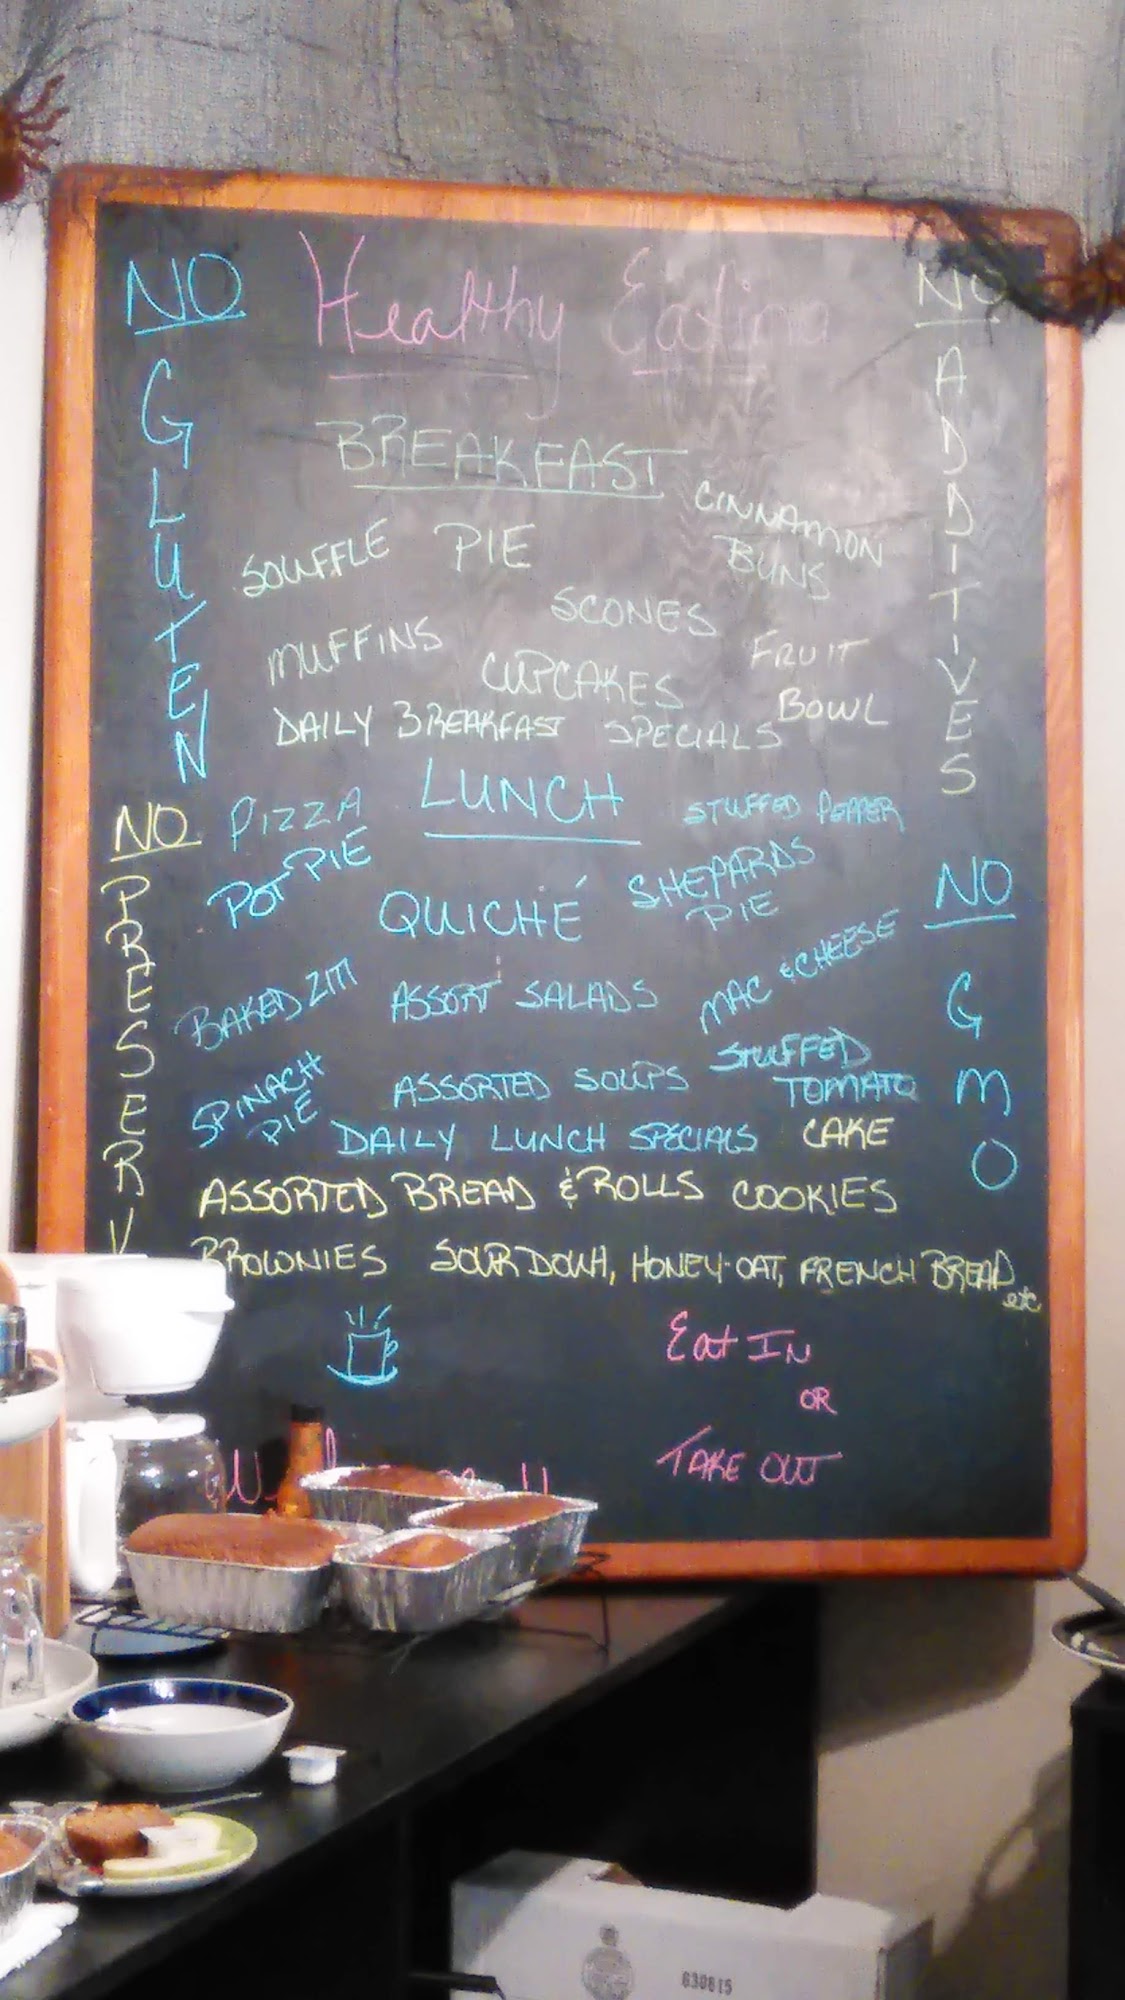 NO
GLUTEN
Healthy Eating
NO
ADDITIVES
BREAKFAST
SOUFFLE PIE
CINNAMON
BUNS
SCONES
MUFFINS
CUPCAKES
FRUIT
BOWL
DAILY BREAKFAST SPECIALS
NO
PRESERV
LUNCH
PIZZA
STUFFED PEPPER
POT PIE
QUICHÉ
SHEPARDS
PIE
BAKED ZITI
ASSORT SALADS
MAC & CHEESE
SPINACH
PIE
ASSORTED SOUPS
STUFFED
TOMATO
DAILY LUNCH SPECIALS
CAKE
NO
GMO
ASSORTED BREAD & ROLLS COOKIES
BROWNIES SOURDOUH, HONEY-OAT, FRENCH BREAD etc
Eat IN
OR
TAKE OUT
630815